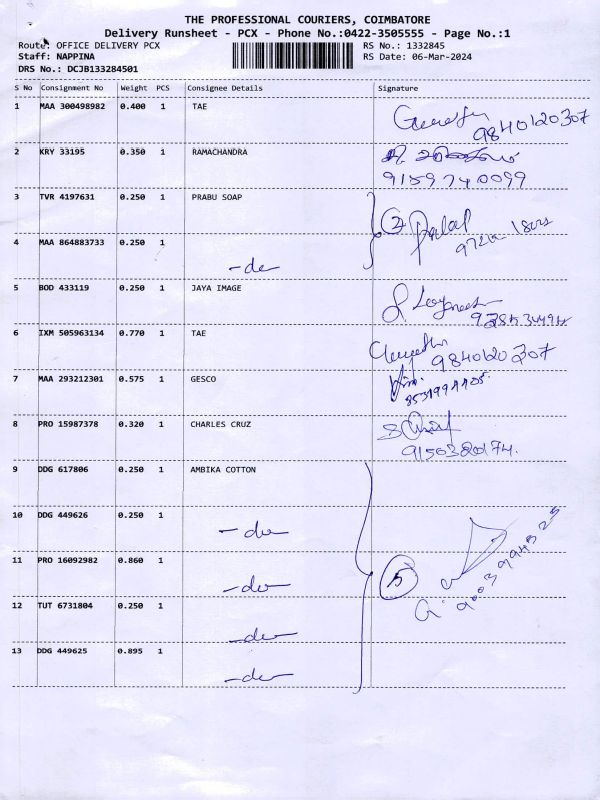 THE PROFESSIONAL COURIERS, COIMBATORE
Delivery Runsheet - PCX - Phone No.:0422-3505555 - Page No.:1
Route: OFFICE DELIVERY PCX RS No.: 1332845
Staff: NAPPINA RS Date: 06-Mar-2024
DRS No.: DCJB133284501
S No Consignment No Weight PCS Consignee Details Signature
1 MAA 300498982 0.400 1 TAE
9840120307
2 KRY 33195 0.350 1 RAMACHANDRA
9159740099
3 TVR 4197631 0.250 1 PRABU SOAP
2
4 MAA 864883733 0.250 1
-do
5 BOD 433119 0.250 1 JAYA IMAGE
6 IXM 505963134 0.770 1 TAE
9840120307
7 MAA 293212301 0.575 1 GESCO
8 PRO 15987378 0.320 1 CHARLES CRUZ
9150380174.
9 DDG 617806 0.250 1 AMBIKA COTTON
10 DDG 449626 0.250 1
-do
11 PRO 16092982 0.860 1
-do
5
12 TUT 6731804 0.250 1
-do
13 DDG 449625 0.895 1
-do